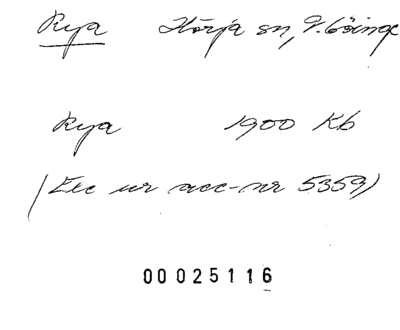 Rya Hörja sn, V. Göinge
Rya 1900 Kb
(Exc ur acc-nr 5359)
00025116